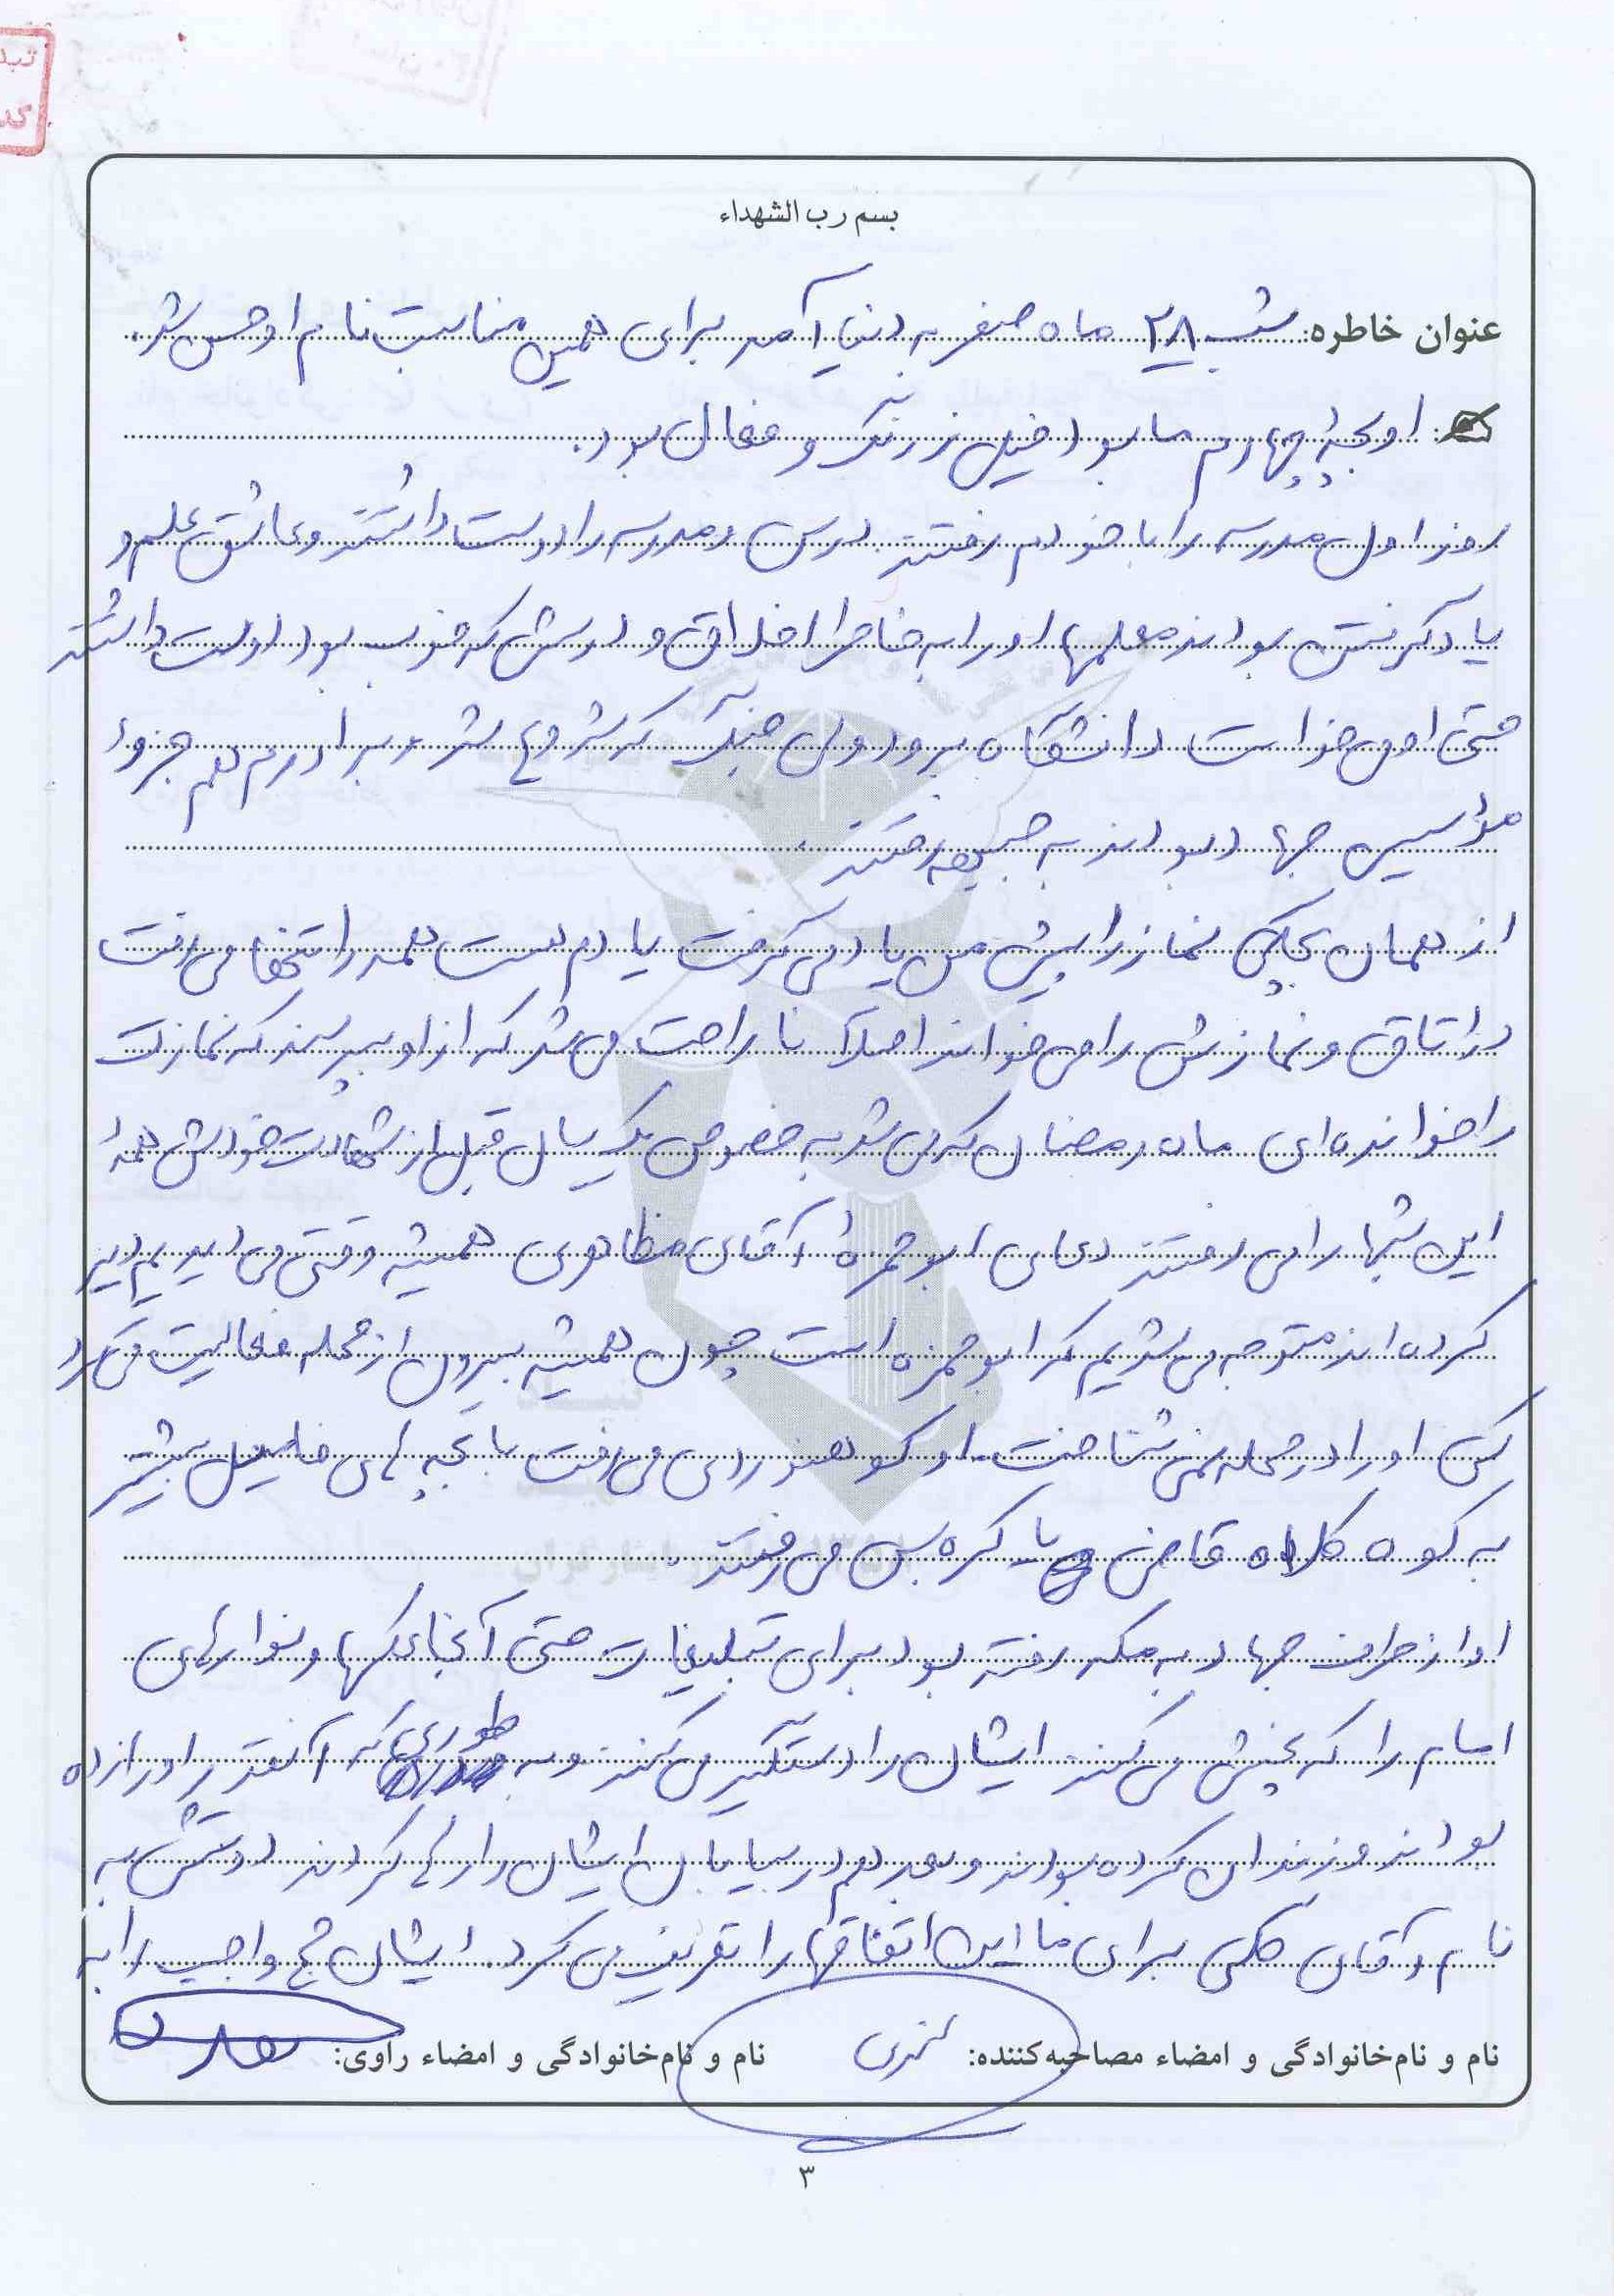 بسم رب الشهداء
عنوان خاطره: شب ۲۸ ماه صفر به دنیا آمد برای همین مناسبت نام او حسن شد.
او بچهٔ چهارم ما بود خیلی زرنگ و فعال بود.
روز اول مدرسه را با خودم رفتند درس و مدرسه را دوست داشتند و عاشق علم و
یادگرفتن بودند معلمها او را به خاطر اخلاق و درسش که خوب بود دوست داشتند
حتی او می خواست دانشگاه برود ولی جنگ که شروع شد و برادرم هم جزوء
مؤسسین جهاد بودند به جبهه رفتند.
از همان بچگی نماز را پیش من یاد می گرفت یادم هست همه را تنها می رفت
در اتاق و نمازش را می خواند اصلاً ناراحت می شد که از او بپرسند که نمازت
را خوانده ای ماه رمضان که می شد به خصوص یک سال قبل از شهادت خودش همهٔ
این شبها را می رفتند دعای ابوحمزهٔ آقای مظاهری همیشه وقتی می دیدیم دیر
کرده اند متوجه می شدیم که ابوحمزه است چون همیشه بیرون از محله فعالیت می کرد
کسی او را در محله نمی شناخت. او کوهنوردی می رفت با بچه های فامیل بیشتر
به کوه کلاه قاضی یا کره بس می رفتند.
او از طرف جهاد به مکه رفته بود برای تبلیغات حتی آنجا عکسها و نوارهای
امام را که پخش می کنند ایشان را دستگیر می کنند و به طوری که آنقدر او را زده
بودند و زندانی کرده بودند و بعد هم در بیابان ایشان را رها کردند دوستش به
نام آقای ملکی برای ما این اتفاقها را تعریف می کرد. ایشان حج واجب را به
نام و نام‌خانوادگی و امضاء مصاحبه‌کننده:
نام و نام‌خانوادگی و امضاء راوی:
۳